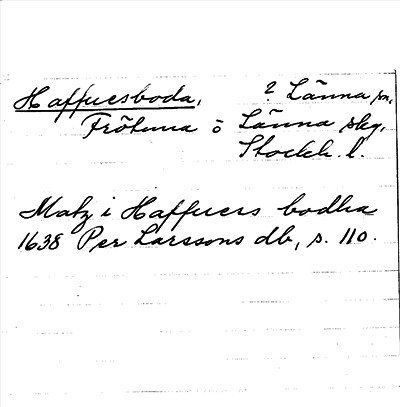 Haffuersboda, 2 Länna sn,
Frötuna o Länna skg,
Stockh. l.
Matz i Haffuers bodha
1638 Per Larssons db, s. 110.